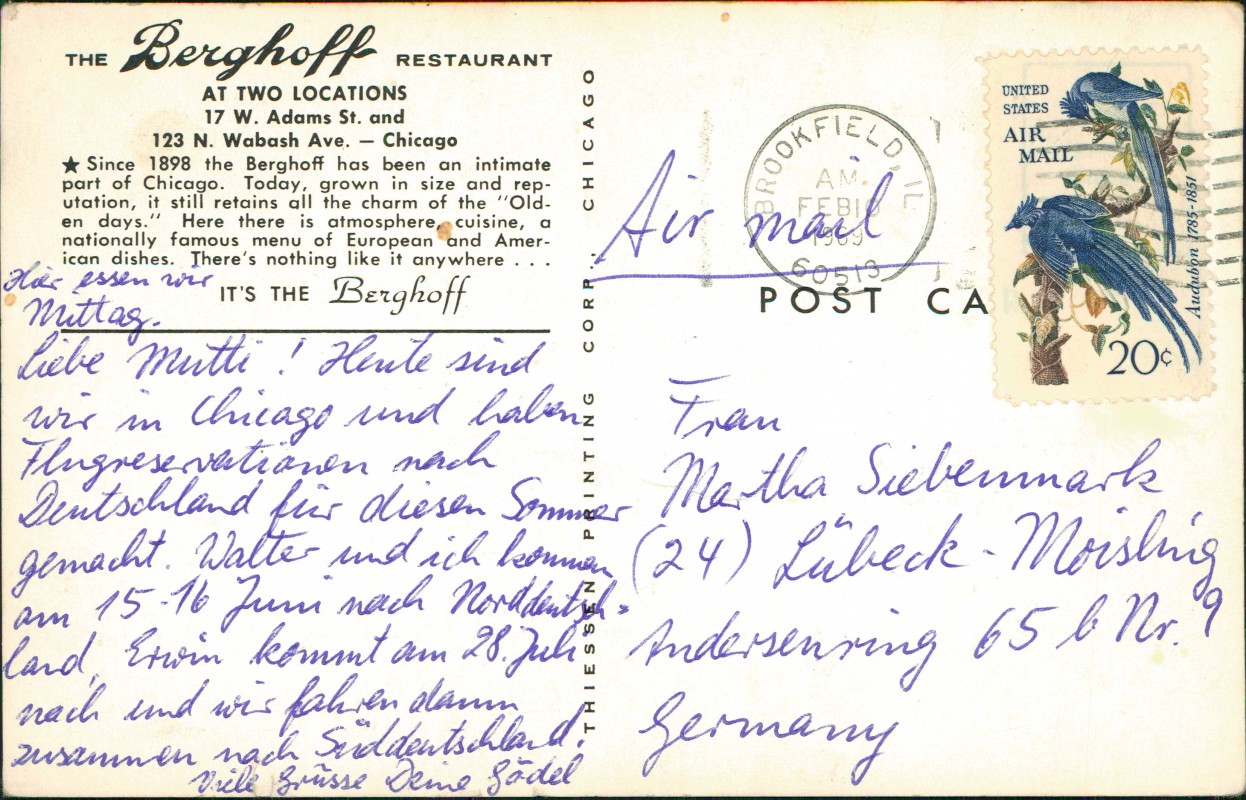 THE Berghoff RESTAURANT
AT TWO LOCATIONS
17 W. Adams St. and
123 N. Wabash Ave. — Chicago
★ Since 1898 the Berghoff has been an intimate
part of Chicago. Today, grown in size and rep-
utation, it still retains all the charm of the "Old-
en days." Here there is atmosphere, cuisine, a
nationally famous menu of European and Amer-
ican dishes. There's nothing like it anywhere . . .
IT'S THE Berghoff
Hier essen wir
Mittag.
Liebe Mutti! Heute sind
wir in Chicago und haben
Flugreservationen nach
Deutschland für diesen Sommer
gemacht. Walter und ich kommen
am 15-16 Juni nach Norddeutsch-
land, Erwin kommt am 28. Juli
nach und wir fahren dann
zusammen nach Süddeutschland.
Viele Grüsse Deine Gödel
THIESSEN PRINTING CORP. CHICAGO
Air mail
BROOKFIELD, IL
AM
FEB
1969
60513
POST CA
UNITED
STATES
AIR
MAIL
Audubon 1785-1851
20¢
Frau
Martha Siebenmark
(24) Lübeck-Moisling
Andersenring 65 b Nr. 9
Germany